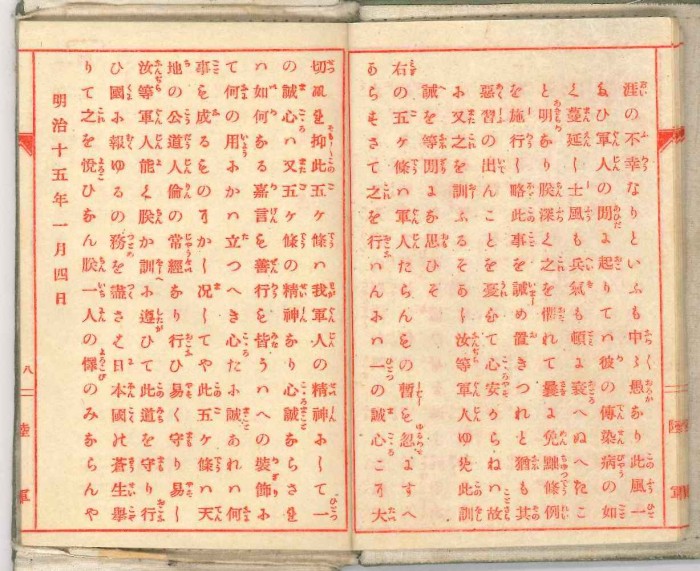 涯の不幸なりといふも中〱愚なり此風一
たひ軍人の間に起りては彼の傳染病の如
く蔓延し士風も兵氣も頓に衰へぬへきこ
と明なり朕深く之を懼れて曩に免黜條例
を施行し略此事を誡め置きつれと猶も其
惡習の出んことを憂ひて心安からねは故
に又之を訓ふるそかし汝等軍人ゆめ此訓
誡を等閒にな思ひそ
右の五ヶ條は軍人たらんもの暫も忽にすへ
からすさて之を行はんには一の誠心こそ大
切なれ抑此五ヶ條は我軍人の精神にして一
の誠心は又五ヶ條の精神なり心誠ならされ
は如何なる嘉言も善行も皆うはへの裝飾に
て何の用にかは立つへき心たに誠あれは何
事も成るものそかし况してや此五ヶ條は天
地の公道人倫の常經なり行ひ易く守り易し
汝等軍人能く朕か訓に遵ひて此道を守り行
ひ國に報ゆるの務を盡さは日本國の蒼生擧
りて之を悅ひなん朕一人の懌のみならんや
明治十五年一月四日
八
陸軍